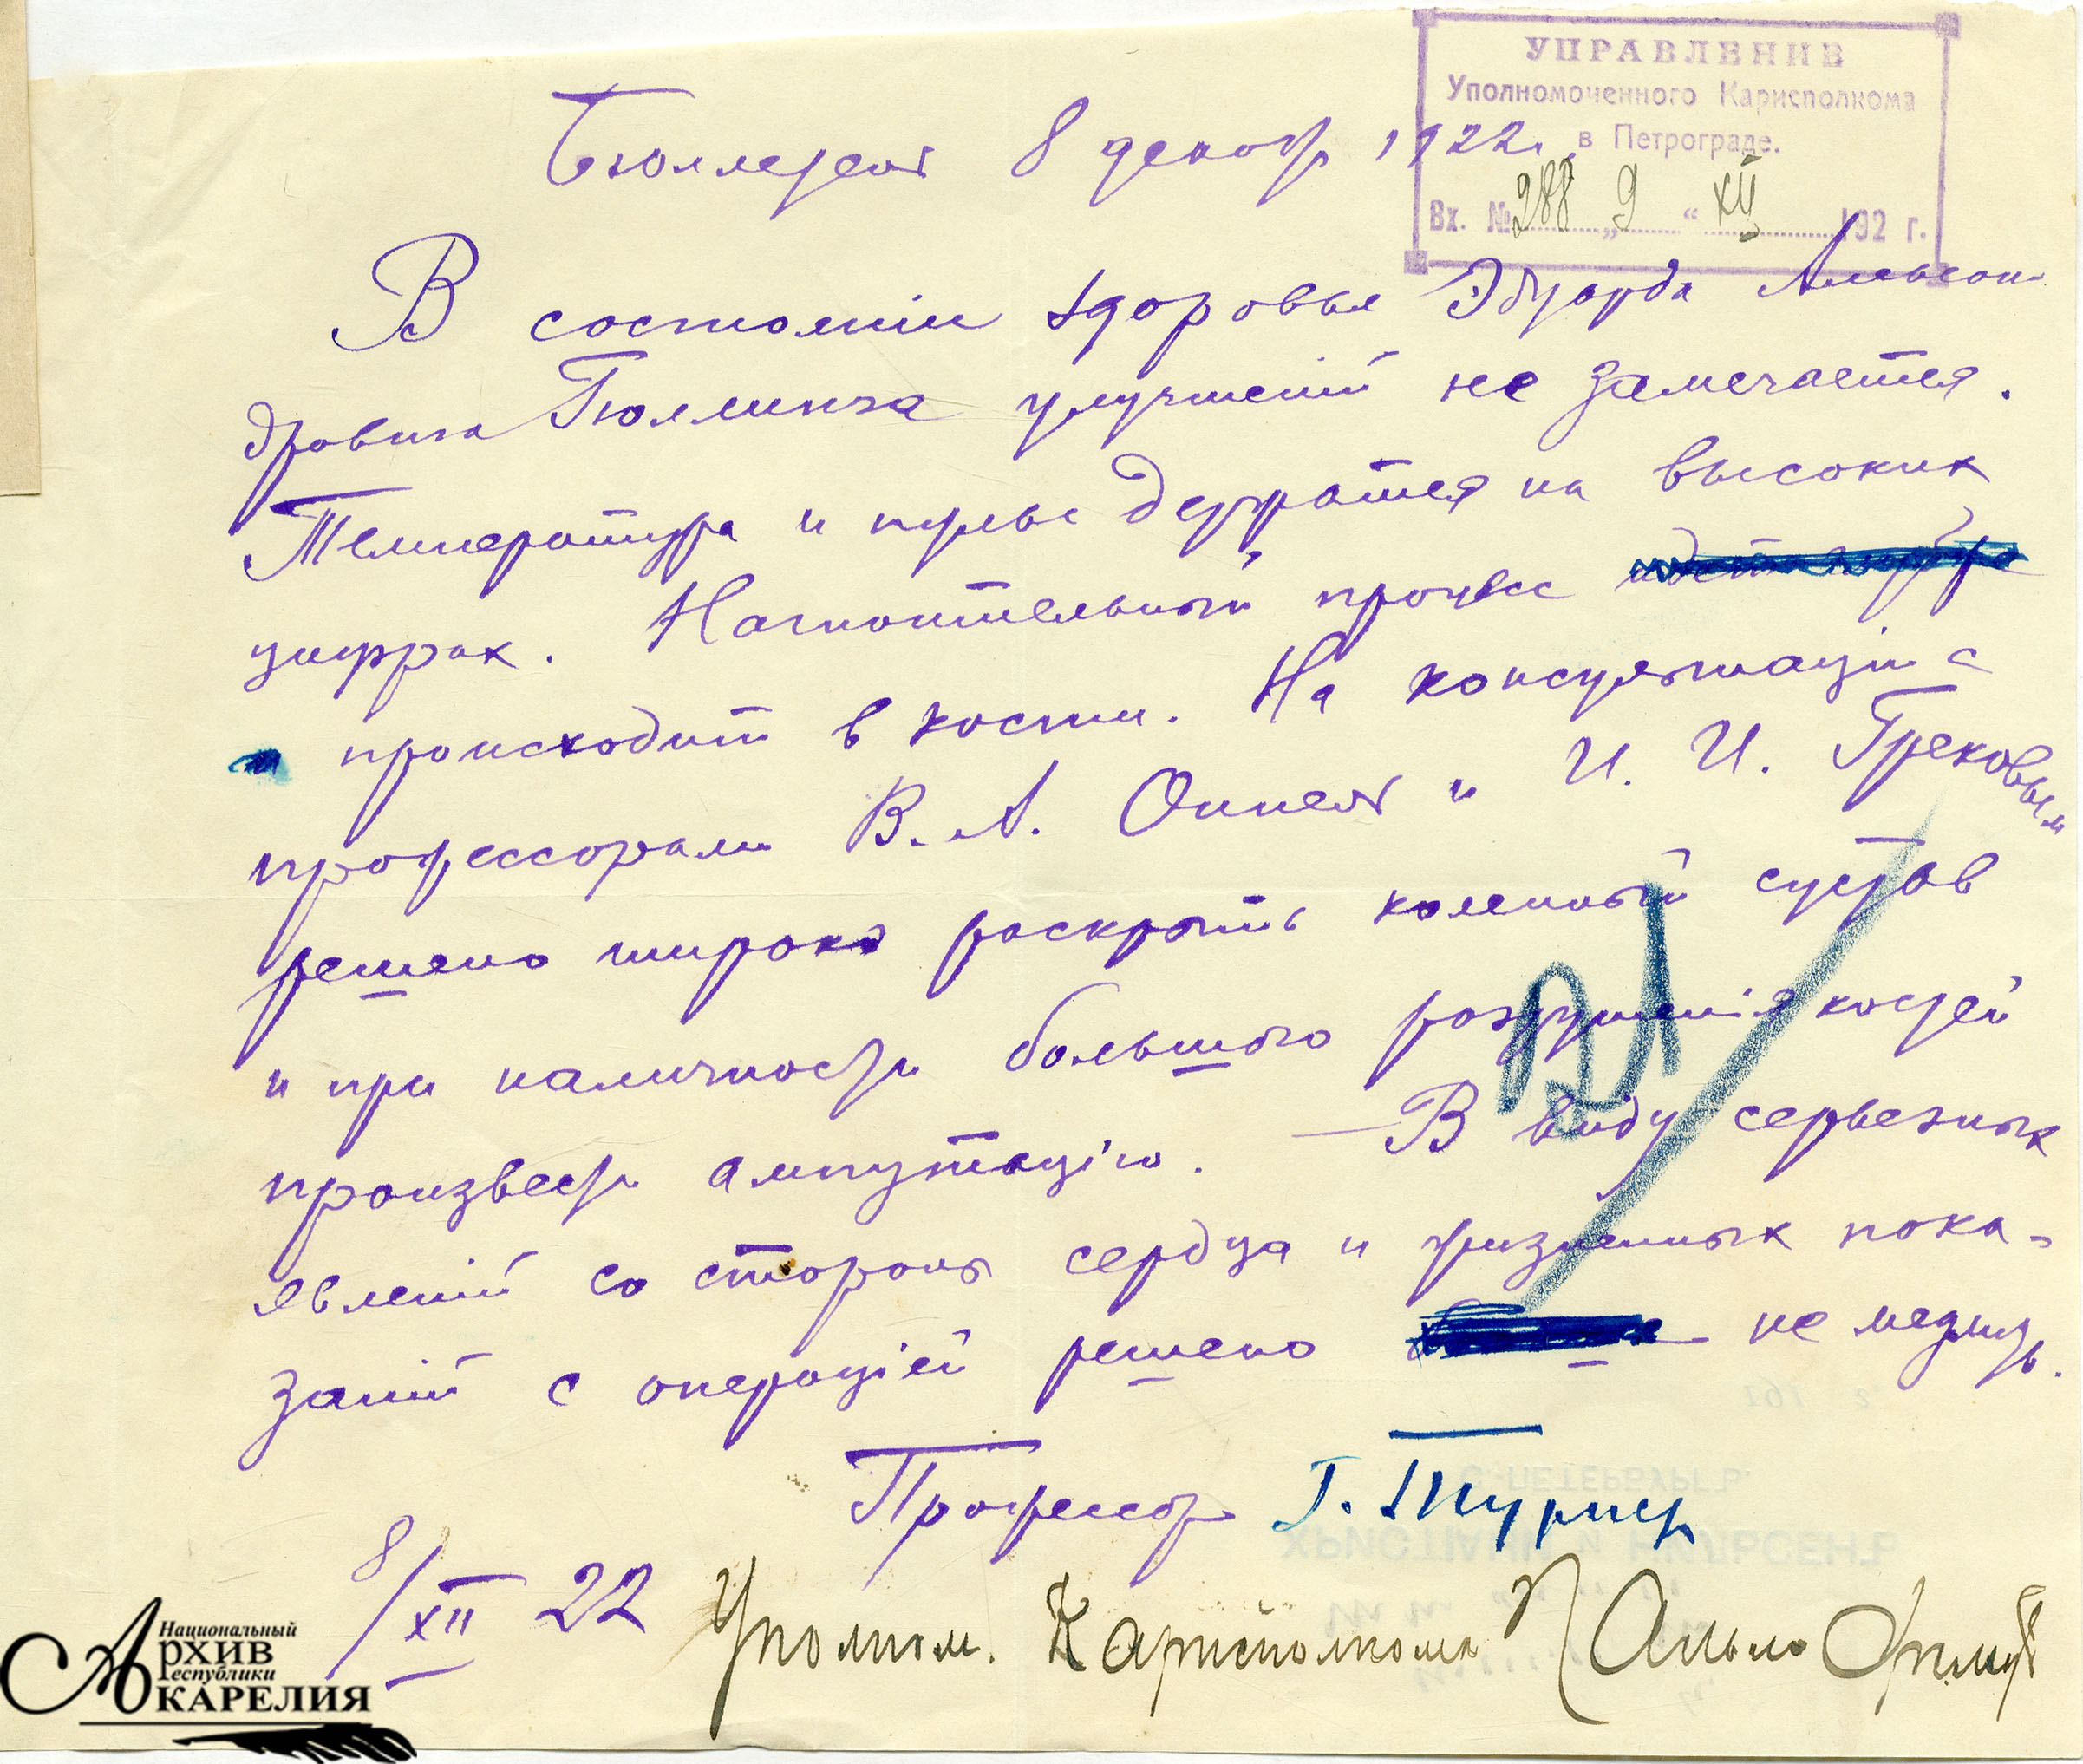 УПРАВЛЕНИЕ
Уполномоченного Карисполкома
в Петрограде.
Вх. № 288 „ 9 “ XII 192 г.
Бюллетень 8 декабр 1922 г.
В состоянiи здоровья Эдуарда Алексан
дровича Гюллинга улучшенiй не замечается.
Температура и пульс держатся на высоких
цифрах. Нагноительный процесс
происходит в кости. На консультацiи с
профессорами В. А. Оппель и И. И. Грековым
решено широко раскрыть коленный сустав
и при наличности большого разрушенiя костей
произвести ампутацiю. — В виду серьезных
явленiй со стороны сердца и жизненных пока-
занiй с операцiей решено не медлить.
Профессор Г. Турнер
8/XII 22 Уполном. Карисполкома
С.-ПЕТЕРБУРГЪ.
ХРИСТIАНИ и НИЛЬСЕНЪ
Национальный
АРХИВ
Республики
КАРЕЛИЯ